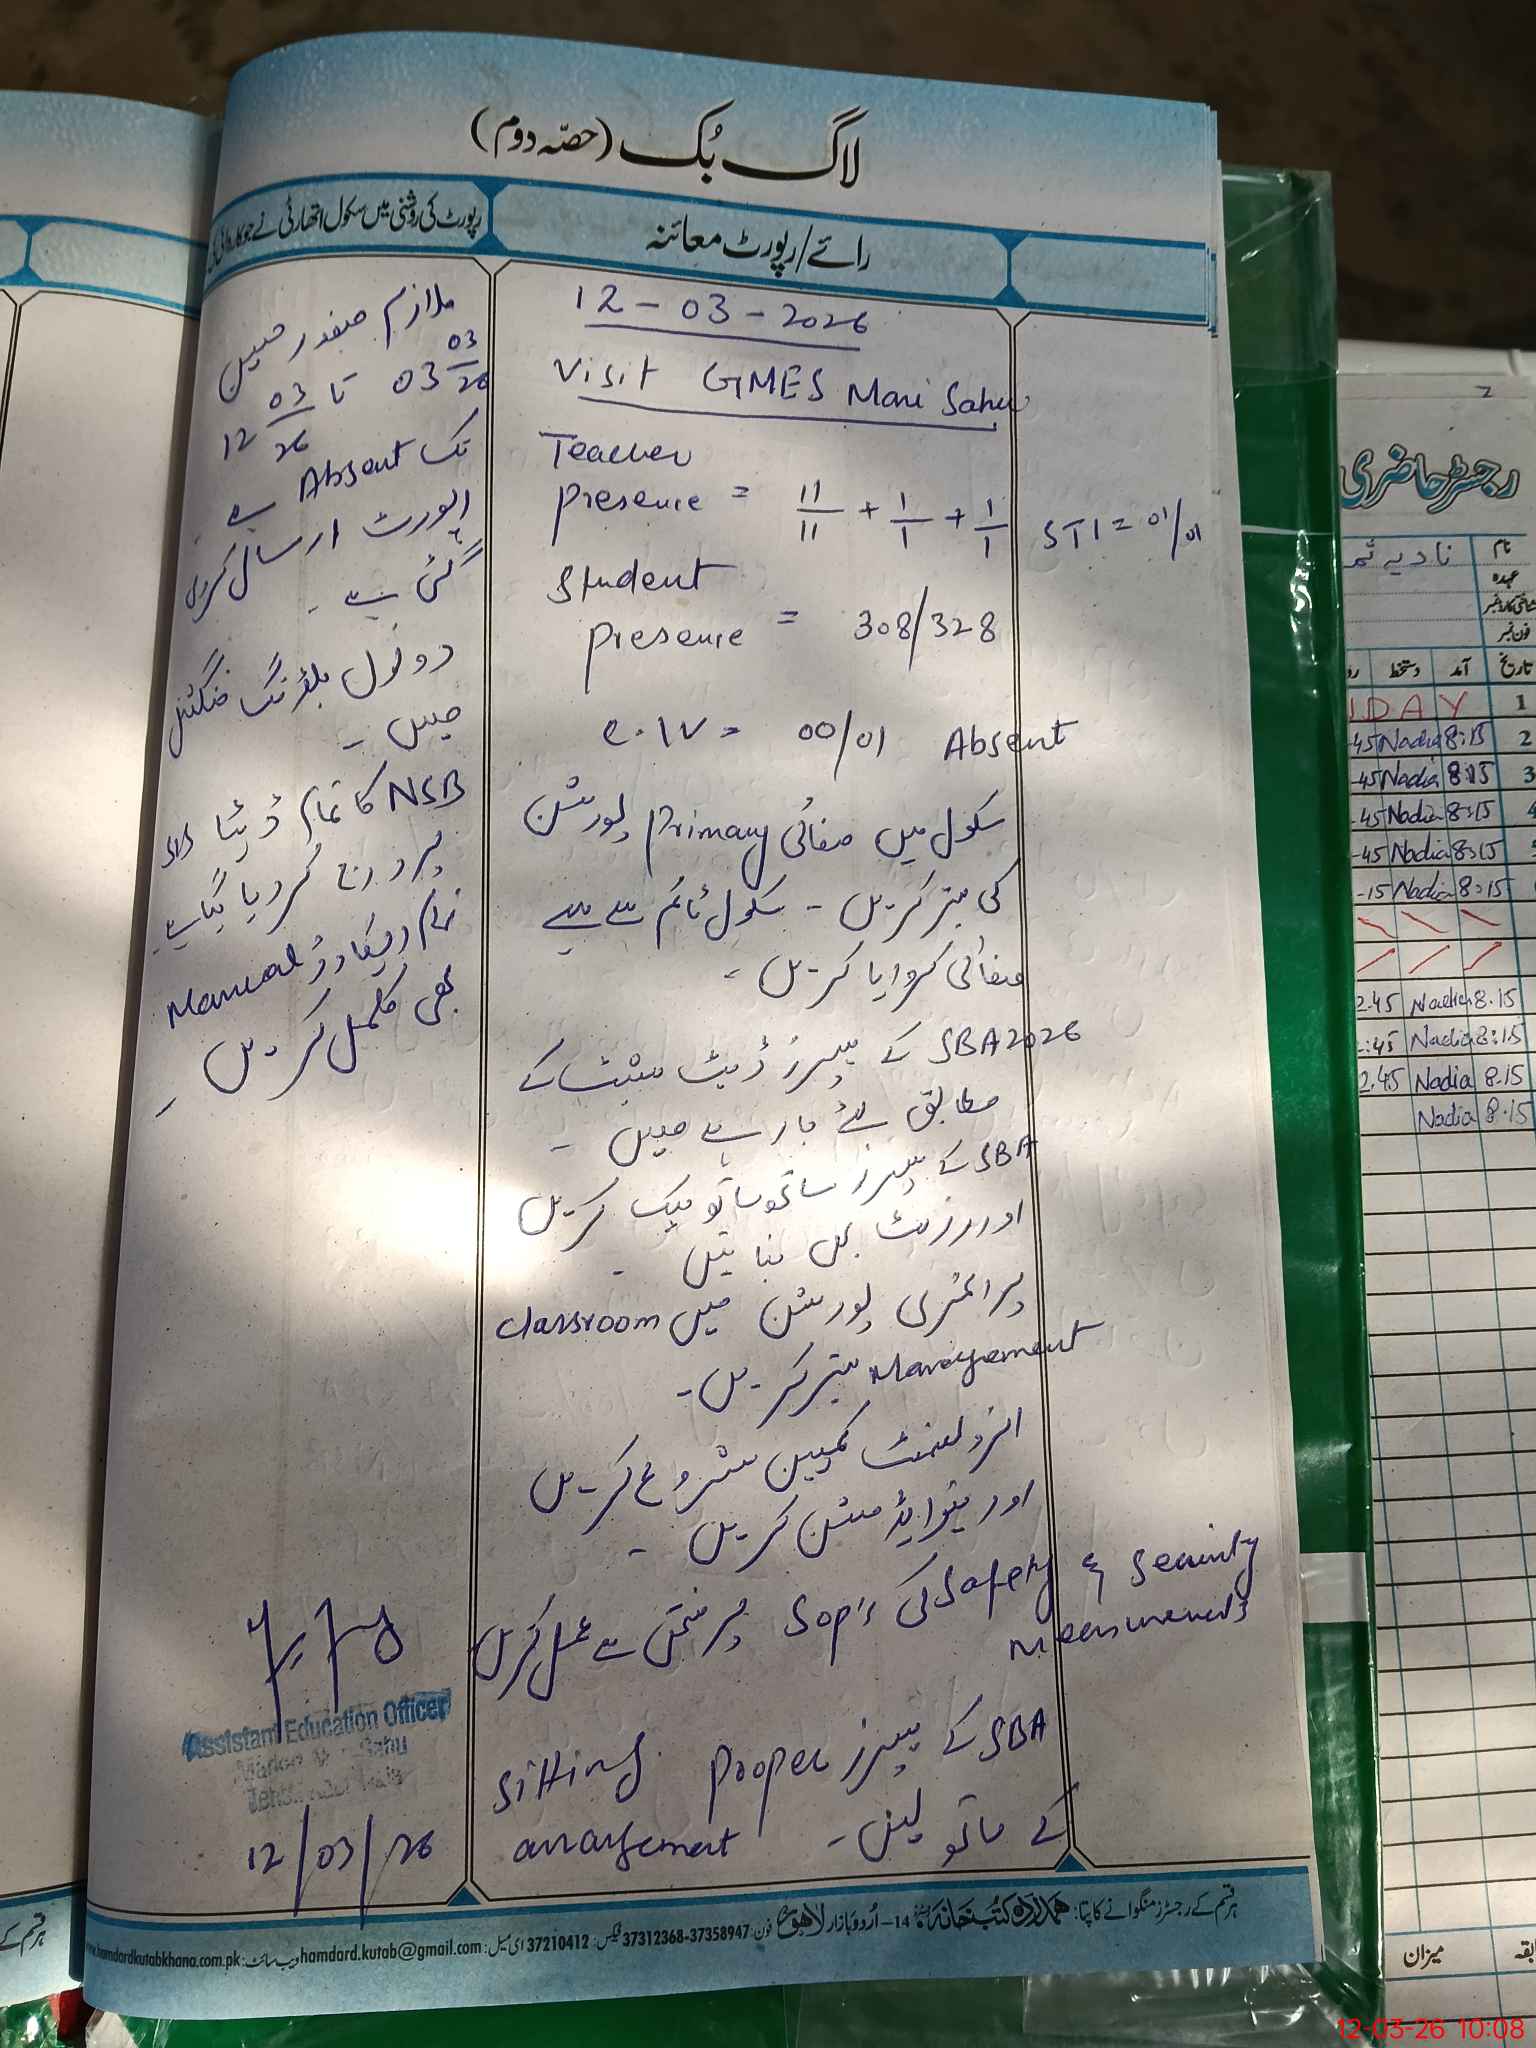 لاگ بک (حصّہ دوم)
رائے/رپورٹ معائنہ
رپورٹ کی روشنی میں سکول اتھارٹی نے جو کاروائی کی
12-03-2026
Visit GMES Mari Sahu
Teacher
Presence = 11/11 + 1/1 + 1/1 STI = 01/01
Student
Presence = 308/328
C.IV = 00/01 Absent
سکول میں صفائی Primary پورشن
کی بہتر کریں - سکول ٹائم سے پہلے
صفائی کروایا کریں -
SBA 2026 کے پیپرز ڈیٹ شیٹ کے
مطابق لئے جا رہے ہیں -
SBA کے پیپرز ساتھ ساتھ چیک کریں
اور رزلٹ بھی بنائیں -
پرائمری پورشن میں classroom
Management بہتر کریں -
انرولمنٹ کمپین شروع کریں
اور نیو ایڈمشن کریں -
Safety & Security
Measurements
کی Sop's پر سختی سے عمل کریں
SBA کے پیپرز proper sitting
arrangement کے ساتھ لیں -
ملازم صفدر حسین
03 03/26 تا 12 03/26
تک Absent ہے
رپورٹ ارسال کر دی
گئی ہے -
دونوں بلڈنگ فنکشنل
ہیں -
NSB کا تمام ڈیٹا SIS
پر درج کر دیا گیا ہے -
تمام ریکارڈ Manual
بھی مکمل کریں -
Assistant Education Officer
12/03/26
ہر قسم کے رجسٹرز منگوانے کا پتا: ہمدرد کتب خانہ 14-اُردو بازار لاہور فون: 37358947-37312368 فیکس: 37210412 ای میل: hamdard.kutab@gmail.com ویب سائٹ: www.hamdardkutabkhana.com.pk
رجسٹر حاضری
نام نادیہ
عہدہ
شناختی کارڈ نمبر
فون نمبر
تاریخ آمد دستخط
1
2 8:15 Nadia
3 8:15 Nadia
8:15 Nadia
8:15 Nadia
8:15 Nadia
8.15 Nadia 2.45
8:15 Nadia
8.15 Nadia 2.45
8.15 Nadia
میزان
12-03-26 10:08